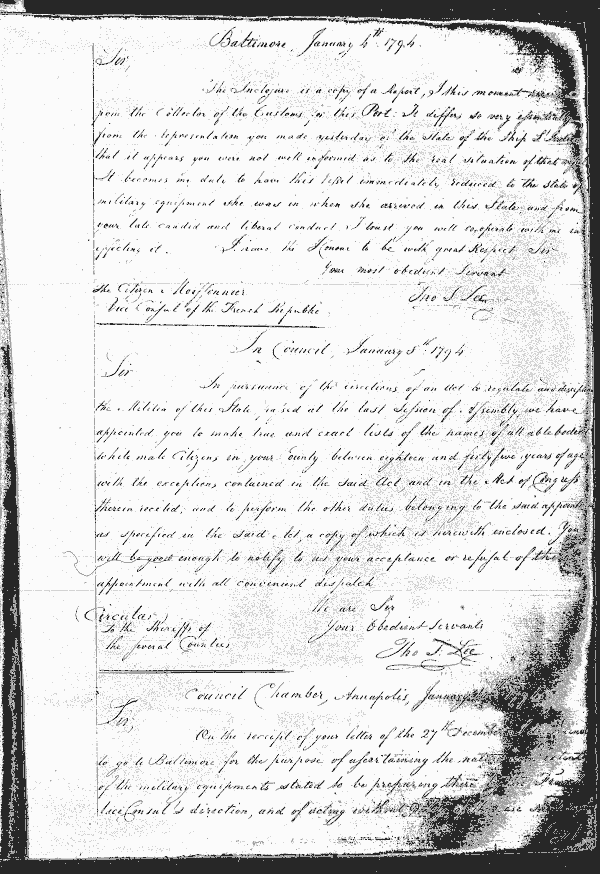 Baltimore, January 4th 1794.
Sir,
The Inclosure is a copy of a Report, I this moment
from the Collector of the Customs for this Port: It differs so very
from the representation you made yesterday of the State of the Ship
that it appears you were not well informed as to the real situation of that
It becomes my duty to have this Vessel immediately reduced to the state of
military equipment she was in when she arrived in this State and from
your late candid and liberal conduct I trust you will cooperate with me in
effecting it. I have the Honour to be with great Respect Sir
Your most obedient Servant
The Citizen Moissonnier
Tho S. Lee
Vice Consul of the French Republic
In Council, January 5th 1794
Sir
In pursuance of the directions of an Act to regulate and discipline
the Militia of this State passed at the last Session of Assembly we have
appointed you to make true and exact lists of the names of all able bodied
white male Citizens in your County between eighteen and forty five years of age
with the exceptions contained in the said Act and in the Act of Congress
therein recited, and to perform the other duties belonging to the said
as specified in the said Act, a copy of which is herewith enclosed. You
will be good enough to notify to us your acceptance or refusal of this
appointment, with all convenient dispatch
(Circular)
We are Sir
To the Sheriffs of
Your Obedient Servants
the several Counties
Tho S. Lee
Council Chamber, Annapolis, January
Sir,
On the receipt of your letter of the 27th December
to go to Baltimore for the purpose of ascertaining the
of the military equipments stated to be preparing there
Vice Consul's direction, and of acting without